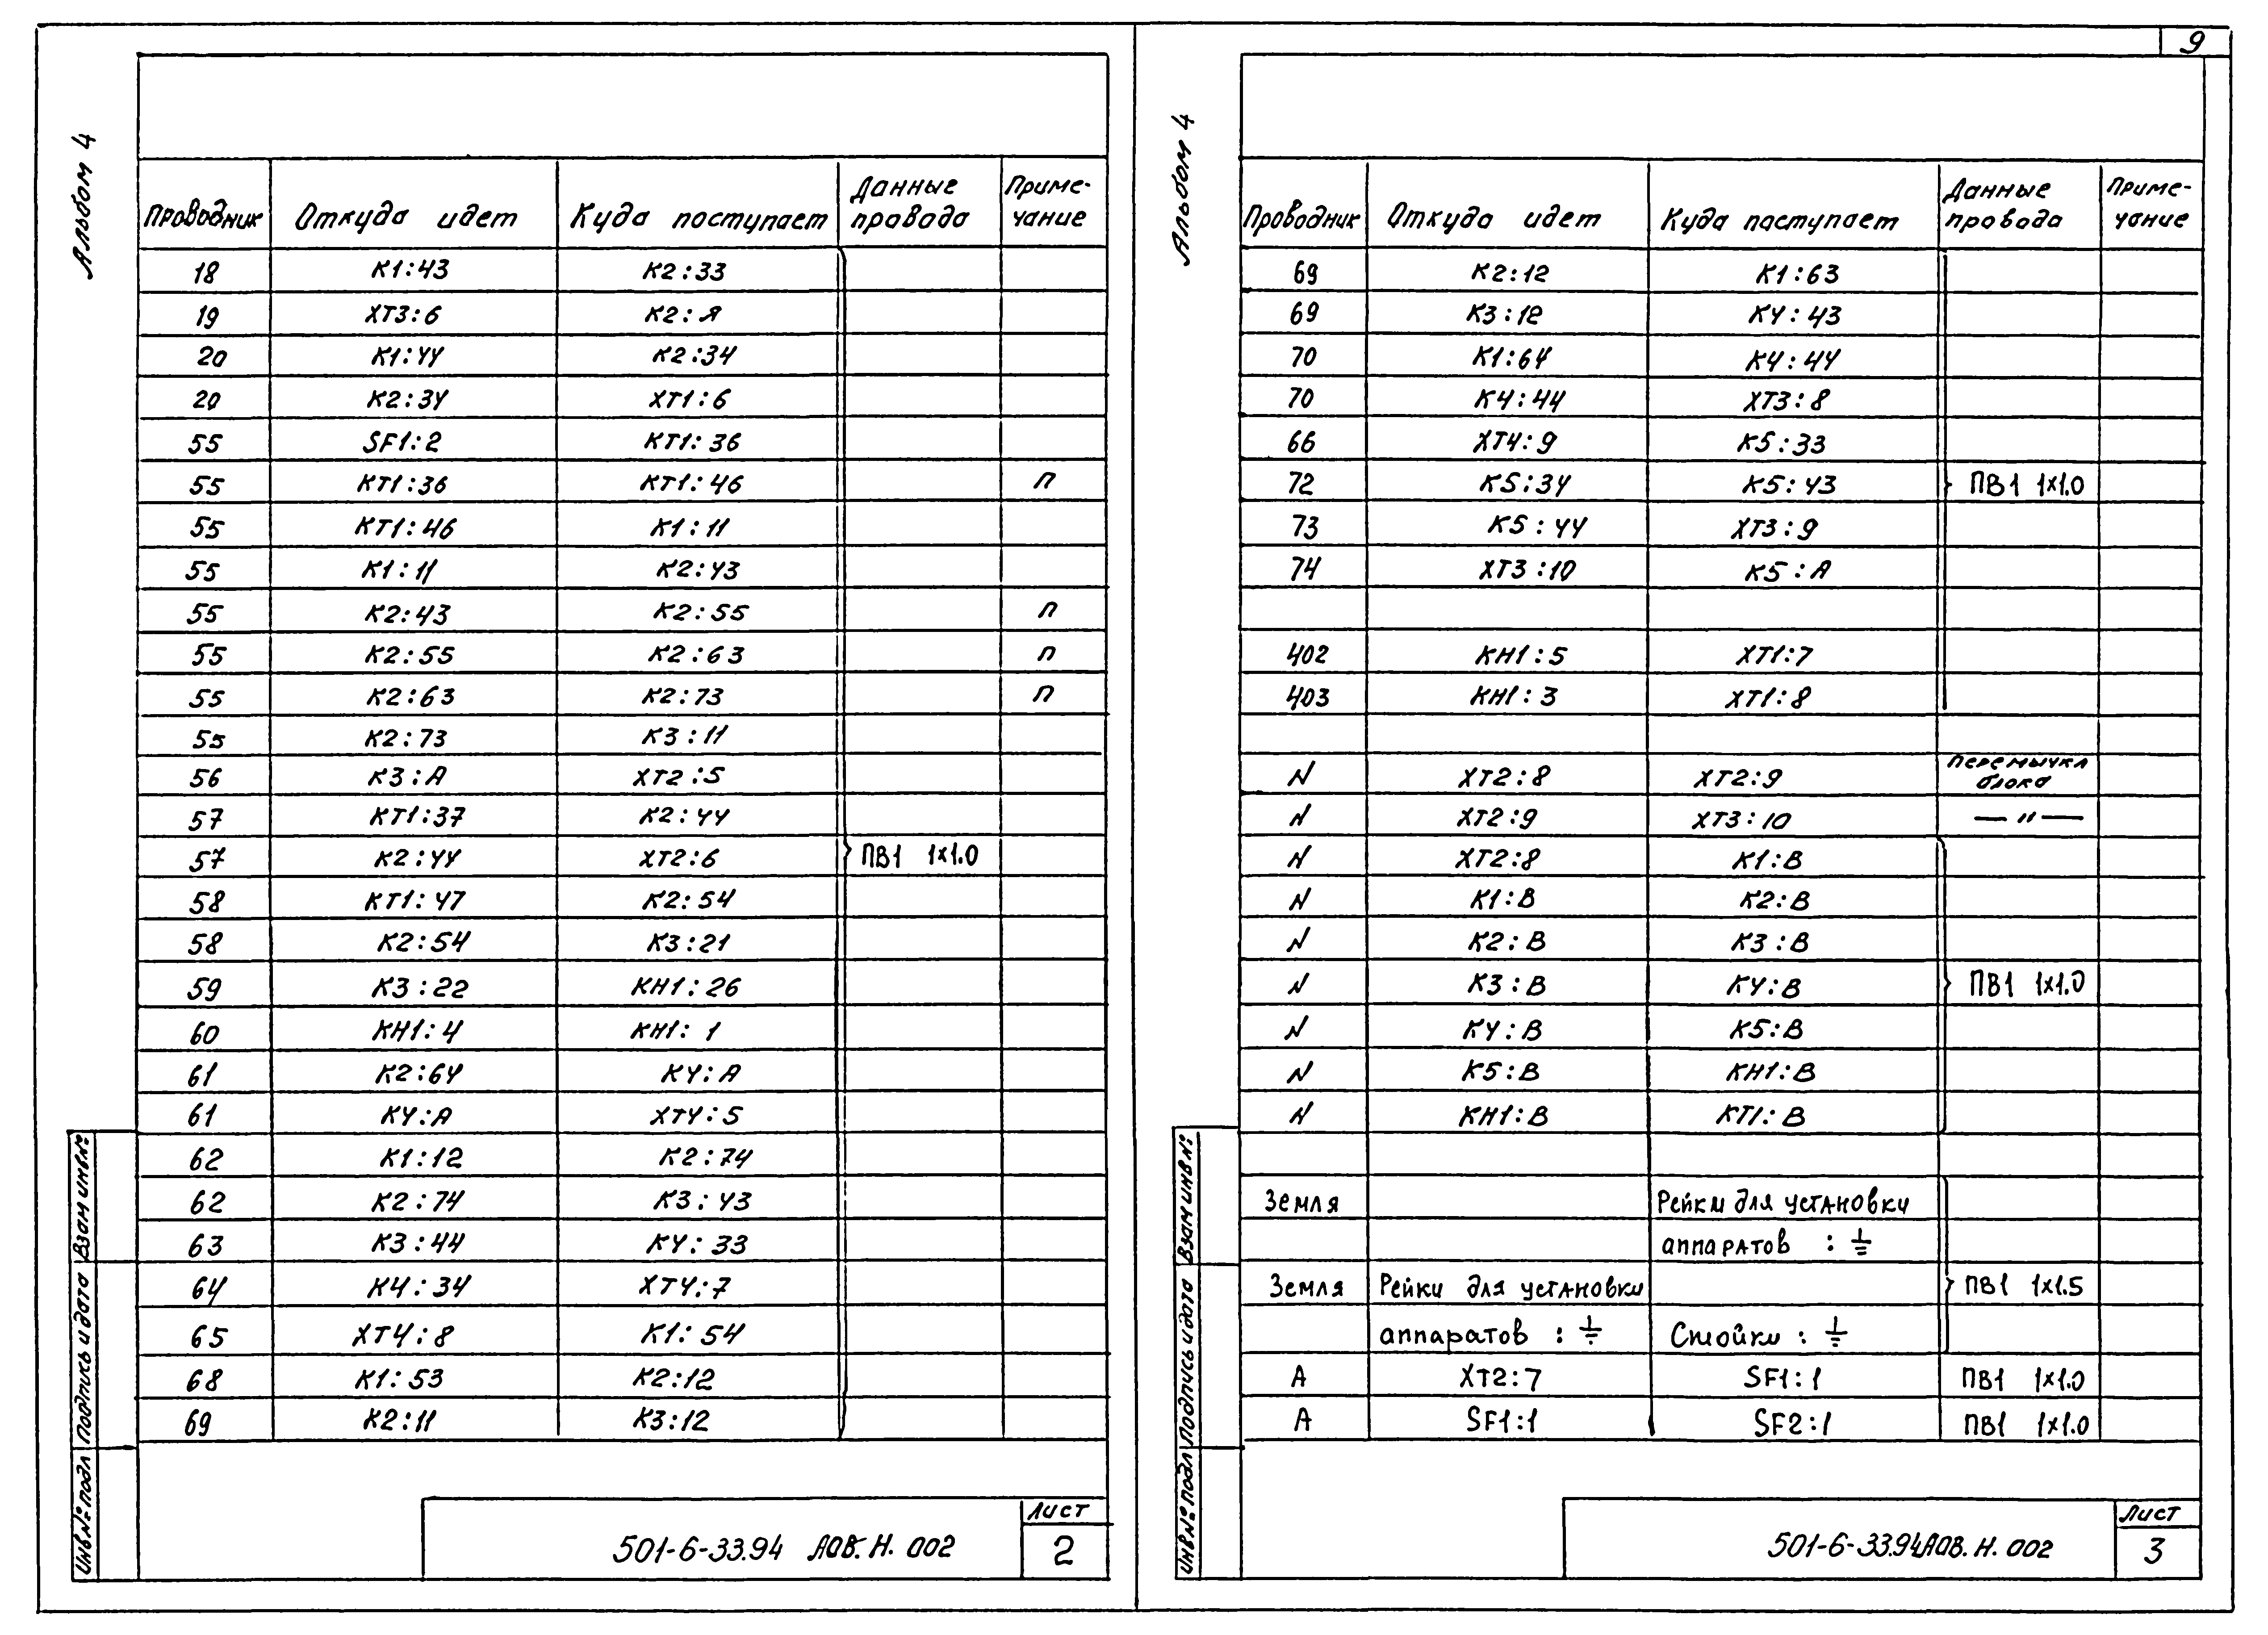 9
Альбом 4
Проводник Откуда идет Куда поступает Данные провода Приме-чание
18 К1:43 К2:33
19 ХТ3:6 К2:А
20 К1:44 К2:34
20 К2:34 ХТ1:6
55 SF1:2 КТ1:36
55 КТ1:36 КТ1:46 П
55 КТ1:46 К1:11
55 К1:11 К2:43
55 К2:43 К2:55 П
55 К2:55 К2:63 П
55 К2:63 К2:73 П
55 К2:73 К3:11
56 К3:А ХТ2:5
57 КТ1:37 К2:44
57 К2:44 ХТ2:6 ПВ1 1х1.0
58 КТ1:47 К2:54
58 К2:54 К3:21
59 К3:22 КН1:26
60 КН1:4 КН1:1
61 К2:64 К4:А
61 К4:А ХТ4:5
62 К1:12 К2:74
62 К2:74 К3:43
63 К3:44 К4:33
64 К4:34 ХТ4:7
65 ХТ4:8 К1:54
68 К1:53 К2:12
69 К2:11 К3:12
Инв№подл Подпись и дата Взам инв№
501-6-33.94 АОВ.Н.002
Лист
2
Альбом 4
Проводник Откуда идет Куда поступает Данные провода Приме-чание
69 К2:12 К1:63
69 К3:12 К4:43
70 К1:64 К4:44
70 К4:44 ХТ3:8
66 ХТ4:9 К5:33
72 К5:34 К5:43 ПВ1 1х1.0
73 К5:44 ХТ3:9
74 ХТ3:10 К5:А
402 КН1:5 ХТ1:7
403 КН1:3 ХТ1:8
N ХТ2:8 ХТ2:9 Перемычка блока
N ХТ2:9 ХТ3:10 — " —
N ХТ2:8 К1:В
N К1:В К2:В
N К2:В К3:В
N К3:В К4:В ПВ1 1х1.0
N К4:В К5:В
N К5:В КН1:В
N КН1:В КТ1:В
Земля Рейки для установки
аппаратов : ⏚
Земля Рейки для установки ПВ1 1х1.5
аппаратов : ⏚ Стойки : ⏚
А ХТ2:7 SF1:1 ПВ1 1х1.0
А SF1:1 SF2:1 ПВ1 1х1.0
Инв№подл Подпись и дата Взам инв№
501-6-33.94 АОВ.Н.002
Лист
3